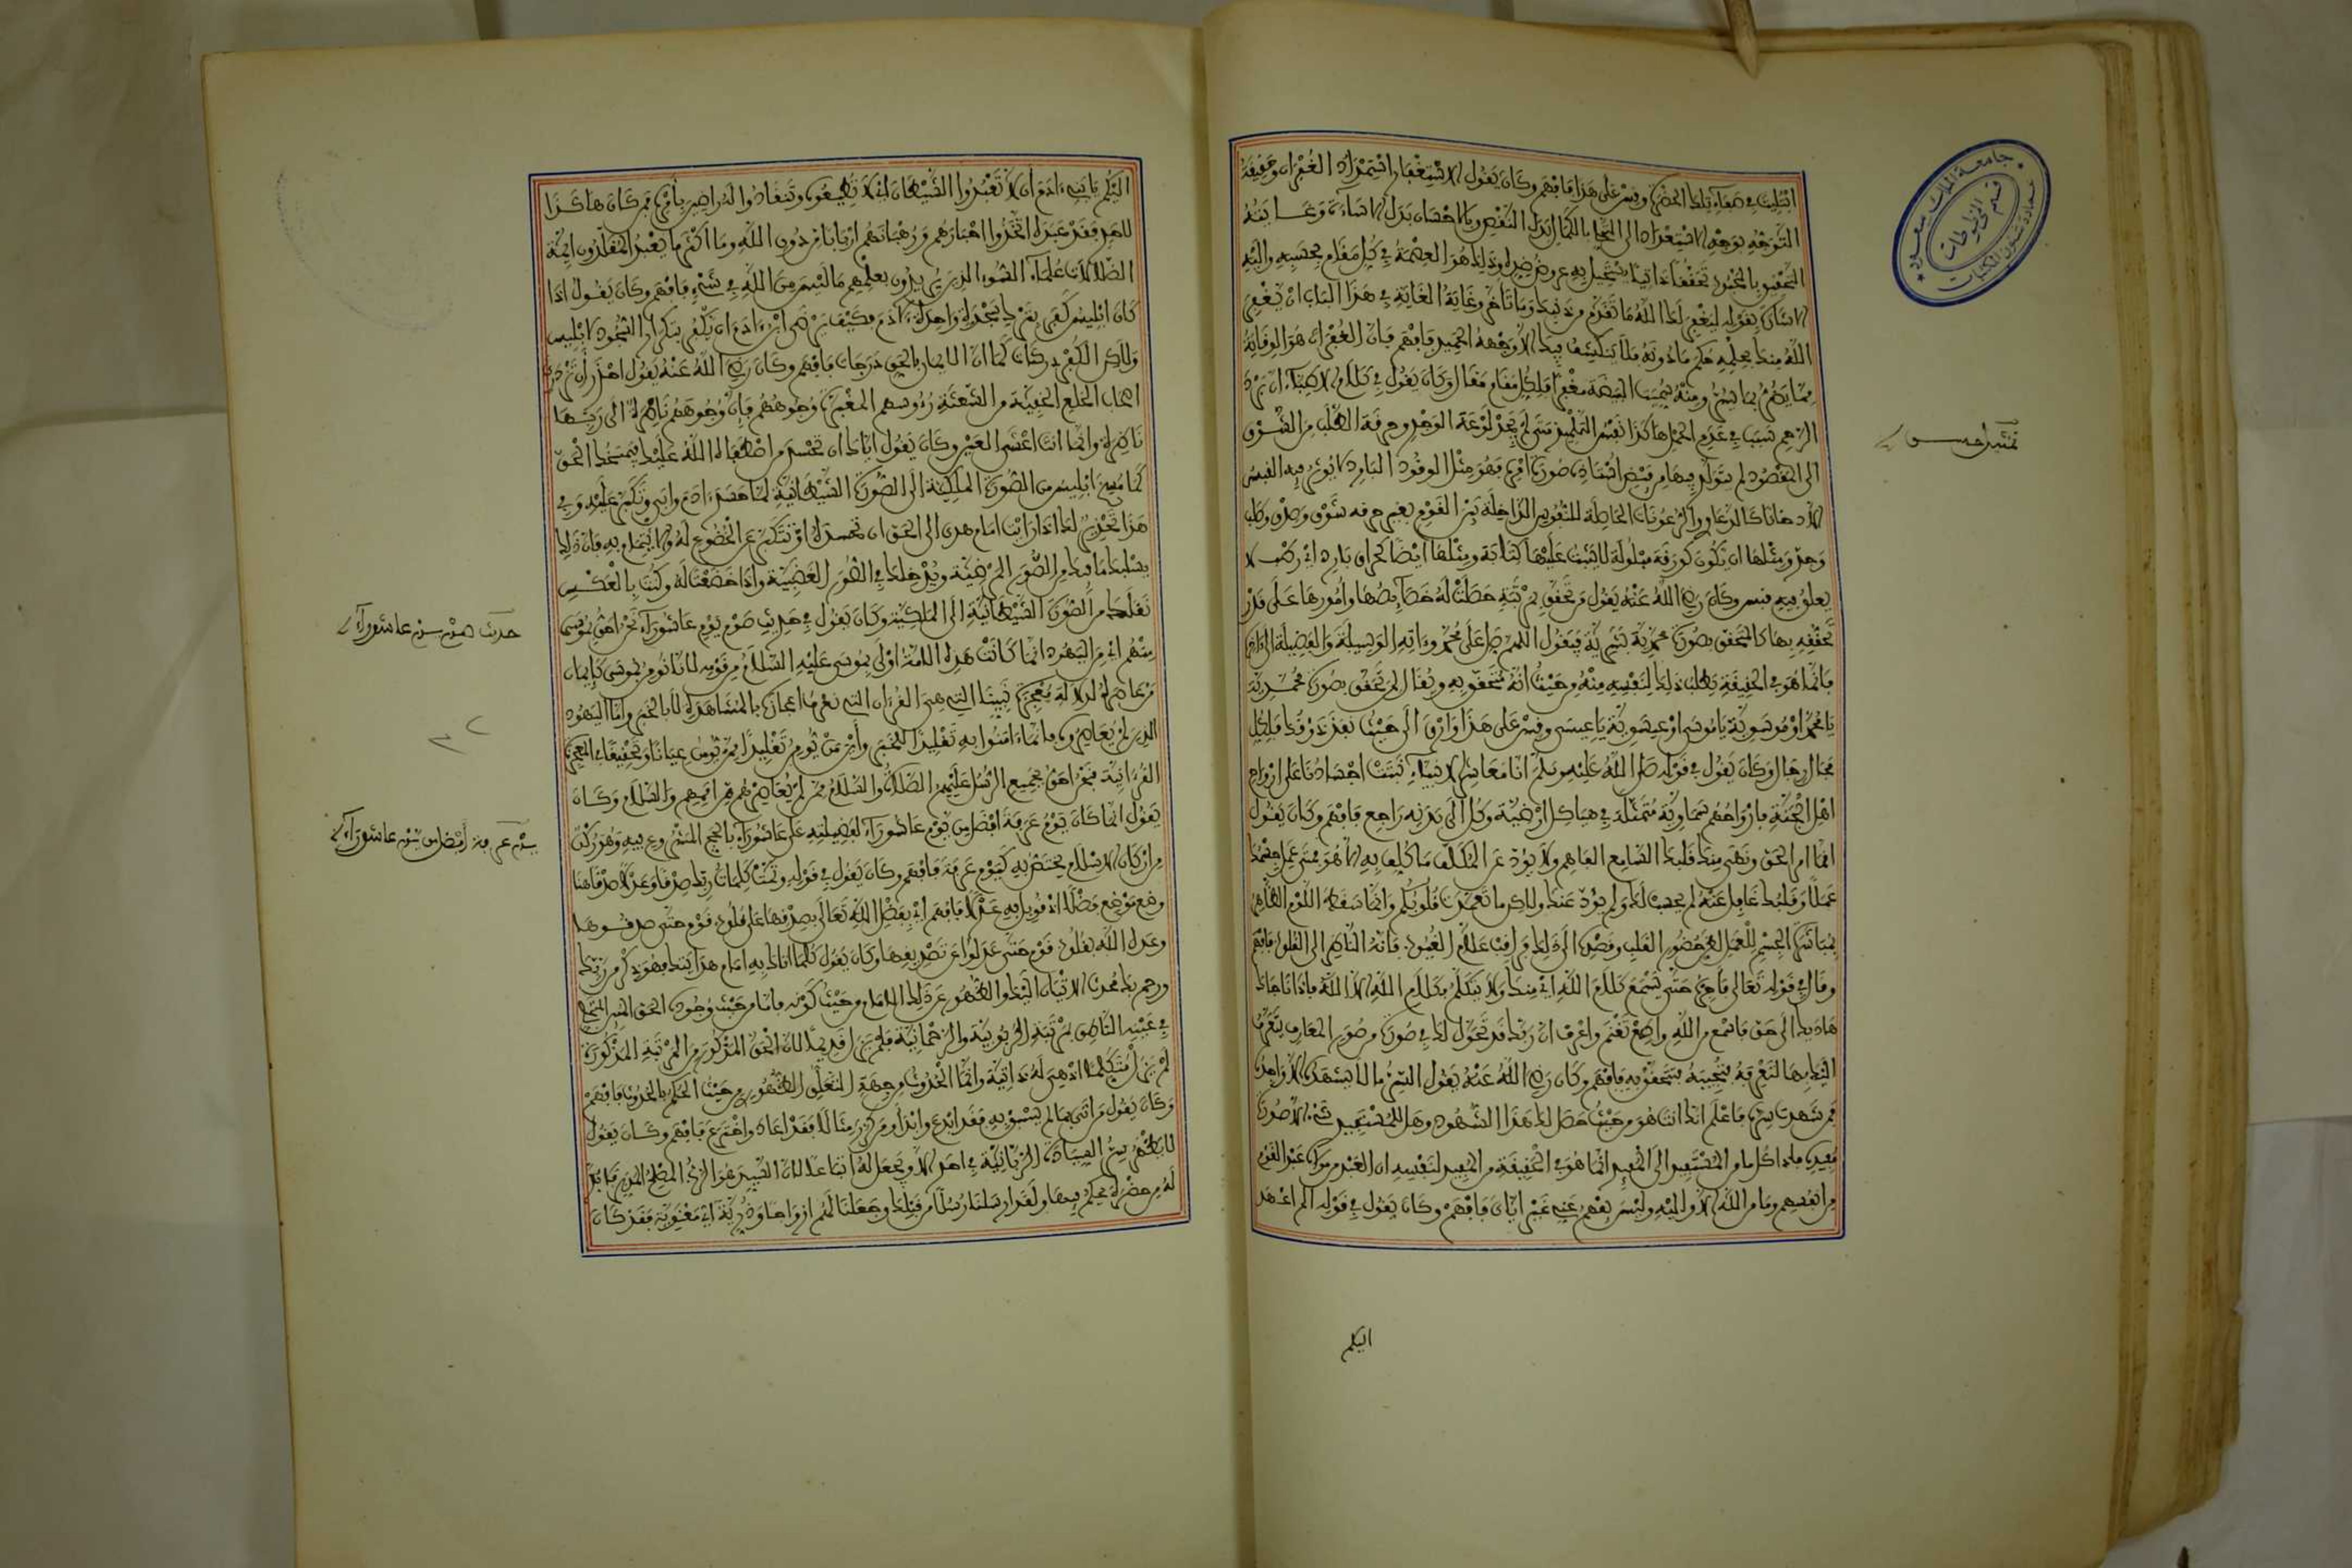 ابتليت في صفاء تلك الحضرة وقس على هذا فافهم وكان يقول الاستغفار استمداد الغفران وحقيقة
التوجه بوجه الاستعداد الى التجلي بالكمال بدل النقص وبالاحسان بدل الاساءة وغايته
التحقق بالمحبوب تحققا ذاتيا يستحيل به عروض ضده وذلك هو العصمة في كل مقام بحسبه واليه
الاشارة بقوله ليغفر لك الله ما تقدم من ذنبك وما تاخر وغاية الغاية في هذا الباب ان يغفر
الله منك بحيطة حكم ما دونه فلا ينكشف فيك الا وجهه الحميد فافهم فان الغفران هو الوقاية
مما يضر بما يستر ومنه سميت البيضة مغفرا فلكل مقام مقال وكان يقول في كلام الاطباء ان برد
الرحم سبب في عدم الحمل هكذا نفس التلميذ متى لم يجد لوعة الوجد وحرقة الطلب من الشوق
الى المقصود لم يتولد فيها من فيض استاذه صورة امره فهو مثل الوقود البارد لا يؤثر فيه القبس
الا دخانا كالدعاوى والرعونات الحاصلة للنفوس الداخلة بين القوم بغير حرقة شوق وصدق وطلب
وجد ومثلها ان تكون كورقة مبلولة لا يثبت عليها كتابة ومثلها ايضا كحراق بارد اي رطب لا
يعلق فيه قبس وكان رضي الله عنه يقول من تحقق بمرتبة حصلت له خصائصها وامورها على قدر
تحققه بها كالمتحقق بصورة محمدية بشرية فيقول اللهم صل على محمد وءاته الوسيلة والفضيلة الى ءاخره
فانما هو في الحقيقة يطلب ذلك لنفسه منه وحيث انه متحقق به ويقال لمن تحقق بصورة محمدية
يا محمد او موسوية يا موسى او عيسوية يا عيسى وقس على هذا وارق الى حيث نفذ ذوقك فلكل
مجال رجال وكان يقول في قوله صلى الله عليه وسلم انا معاشر الانبياء نبتت اجسادنا على ارواح
اهل الجنة فارواحهم سماوية متمثلة في هياكل ارضية وكل الى بدئه راجع فافهم وكان يقول
انما امر الحق ونهى منك قلبك السامع الفاهم ولا يؤد عن المكلف ما كلف به الا هو فمتى عمل جسمك
عملا وقلبك غافل عنه لم يحسب لك ولم يؤد عنك ولكن ما تعمدت قلوبكم وانما سقط اللوم الظاهر
بمباشرة الجسم للعمل لغير حضور القلب وقصده الى ذلك فراقب علام الغيوب فانه الناظر الى القلوب فافهم
وقال في قوله تعالى فاجره حتى يسمع كلام الله اي منك ولا يتكلم بكلام الله الا الله فاذا جاءك
هاديك الى حق فاسمع من الله واطع تغنم واعرف ان ربك قد تحول لك في صورة من صور المعارف يتعرف
اليك بها لتعرفه فتجيبه فتتحقق به فافهم وكان رضي الله عنه يقول السر ما لا يشهده الا واحد
فمن شهدت سره فاعلم انك انت هو من حيث حصل لك هذا الشهود وهل للمستعيد شيء الا صورة
مفيده فلهذا كل ما من المستفيد الى المفيد انما هو في الحقيقة من المفيد لنفسه ان العبد من مولاه عبد القوم
من انفسهم وما من الله الا والى الله وليس يفهم عنه غير اياي فافهم وكان يقول في قوله الم اعهد
اليكم
تمثيل حسن
اليكم يا بني ءادم ان لا تعبدوا الشيطان اي لا تطيعوه وتنقادوا له راضين بامره فمن كان هكذا
لاحد فقد عبده اتخذوا احبارهم ورهبانهم اربابا من دون الله وما اكثر ما يعبد المقلدون ائمة
الضلالات علماء السوء الذين يريدون بعلمهم ما ليس من الله في شيء فافهم وكان يقول اذا
كان ابليس كفر بترك سجدة واحدة لادم فكيف يرضى ابن ءادم ان يكفر بتكرار السجود لابليس
ولكن الكفر دركات كما ان الايمان بالحق درجات فافهم وكان رضي الله عنه يقول احذر ان تزدري
اصحاب الخلع الخفية من الشعثة رءوسهم المغبرة وجوههم فان وجوههم ناظرة الى ربها
ناضرة وانما انت اعشى العين وكان يقول اياك ان تحسد من اصطفاه الله عليك فيمسخك الحق
كما مسخ ابليس من الصورة الملكية الى الصورة الشيطانية لما حسد ءادم وابى وتكبر عليه وفي
هذا تحذير لك اذا رايت امام هدى الى الحق ان تحسده او تتكبر عن الخضوع له والايتمام به فان ذلك
يسلبك ما فيك من الصورة المرضية ويدخلك في الصورة الغضبية واذا خضعت له وكنت بالعكس
نقلك من الصورة الشيطانية الى الملكية وكان يقول في حديث صوم يوم عاشوراء نحن احق بموسى
منهم اي من اليهود انما كانت هذه الامة اولى بموسى عليه السلام من قومه لاننا نؤمن بموسى كايمان
من عاصره لدلالة معجزة نبينا التي هي القرءان التي نعرف اعجازه بالمشاهدة لا بالخبر واما اليهود
الذين لم يعاصروه فانما ءامنوا به تقليدا للخبر واين من يؤمن تقليدا ممن يؤمن عيانا وتحقيقا للمعجزة
القرءانية فنحن احق بجميع الرسل عليهم الصلاة والسلام ممن لم يعاصرهم من اممهم والسلام وكان
يقول انما كان يوم عرفة افضل من يوم عاشوراء لفضيلته على عاشوراء بالحج المشروع فيه وهو ركن
من اركان الاسلام يختص به كيوم عرفة فافهم وكان يقول في قوله وتمت كلمات ربك صدقا وعدلا صدقا هنا
وضع موضع فضلا اذ قوبل به عدلا فافهم اي بفضل الله تعالى بصدقها على قلوب قوم حتى صدقوها
وعدل الله بقلوب قوم حتى عدلوا عن تصديقها وكان يقول كلما اتاك به امام هداتك فهو ذكر من ربك
ورحمن بك محدث الاتيان اليك والظهور عن ذلك الامام من حيث كونه فانما من حيث وجوده الحق المبين المتجلي
في عينه الناطق بمرتبة الربوبية والرحمانية فلم يزل قديما لان الحق المذكور من المرتبة المذكورة
لم يزل متكلما اذ هي له ذاتية وانما الحدوث من جهة المتعلق الظهوري من حيث الحكم بالحدوث فافهم
وكان يقول من اتى بما لم يسبق به فقد ابدع وابتدا ومن كرر مثالا فقد اعاد واخترع فافهم وكان يقول
لا يظهر سر السيادة الربانية في احد الا ويجعل له اتباعا لان السيد هو الرب المصلح المربي فلا بد
له من حضرة يحكم فيها ولقد ارسلنا رسلا من قبلك وجعلنا لهم ازواجا وذرية اي معنوية فقد كان
حديث صوم يوم عاشوراء
يوم عرفة افضل من يوم عاشوراء
جامعة الملك سعود
قسم المخطوطات
عمادة شؤون المكتبات